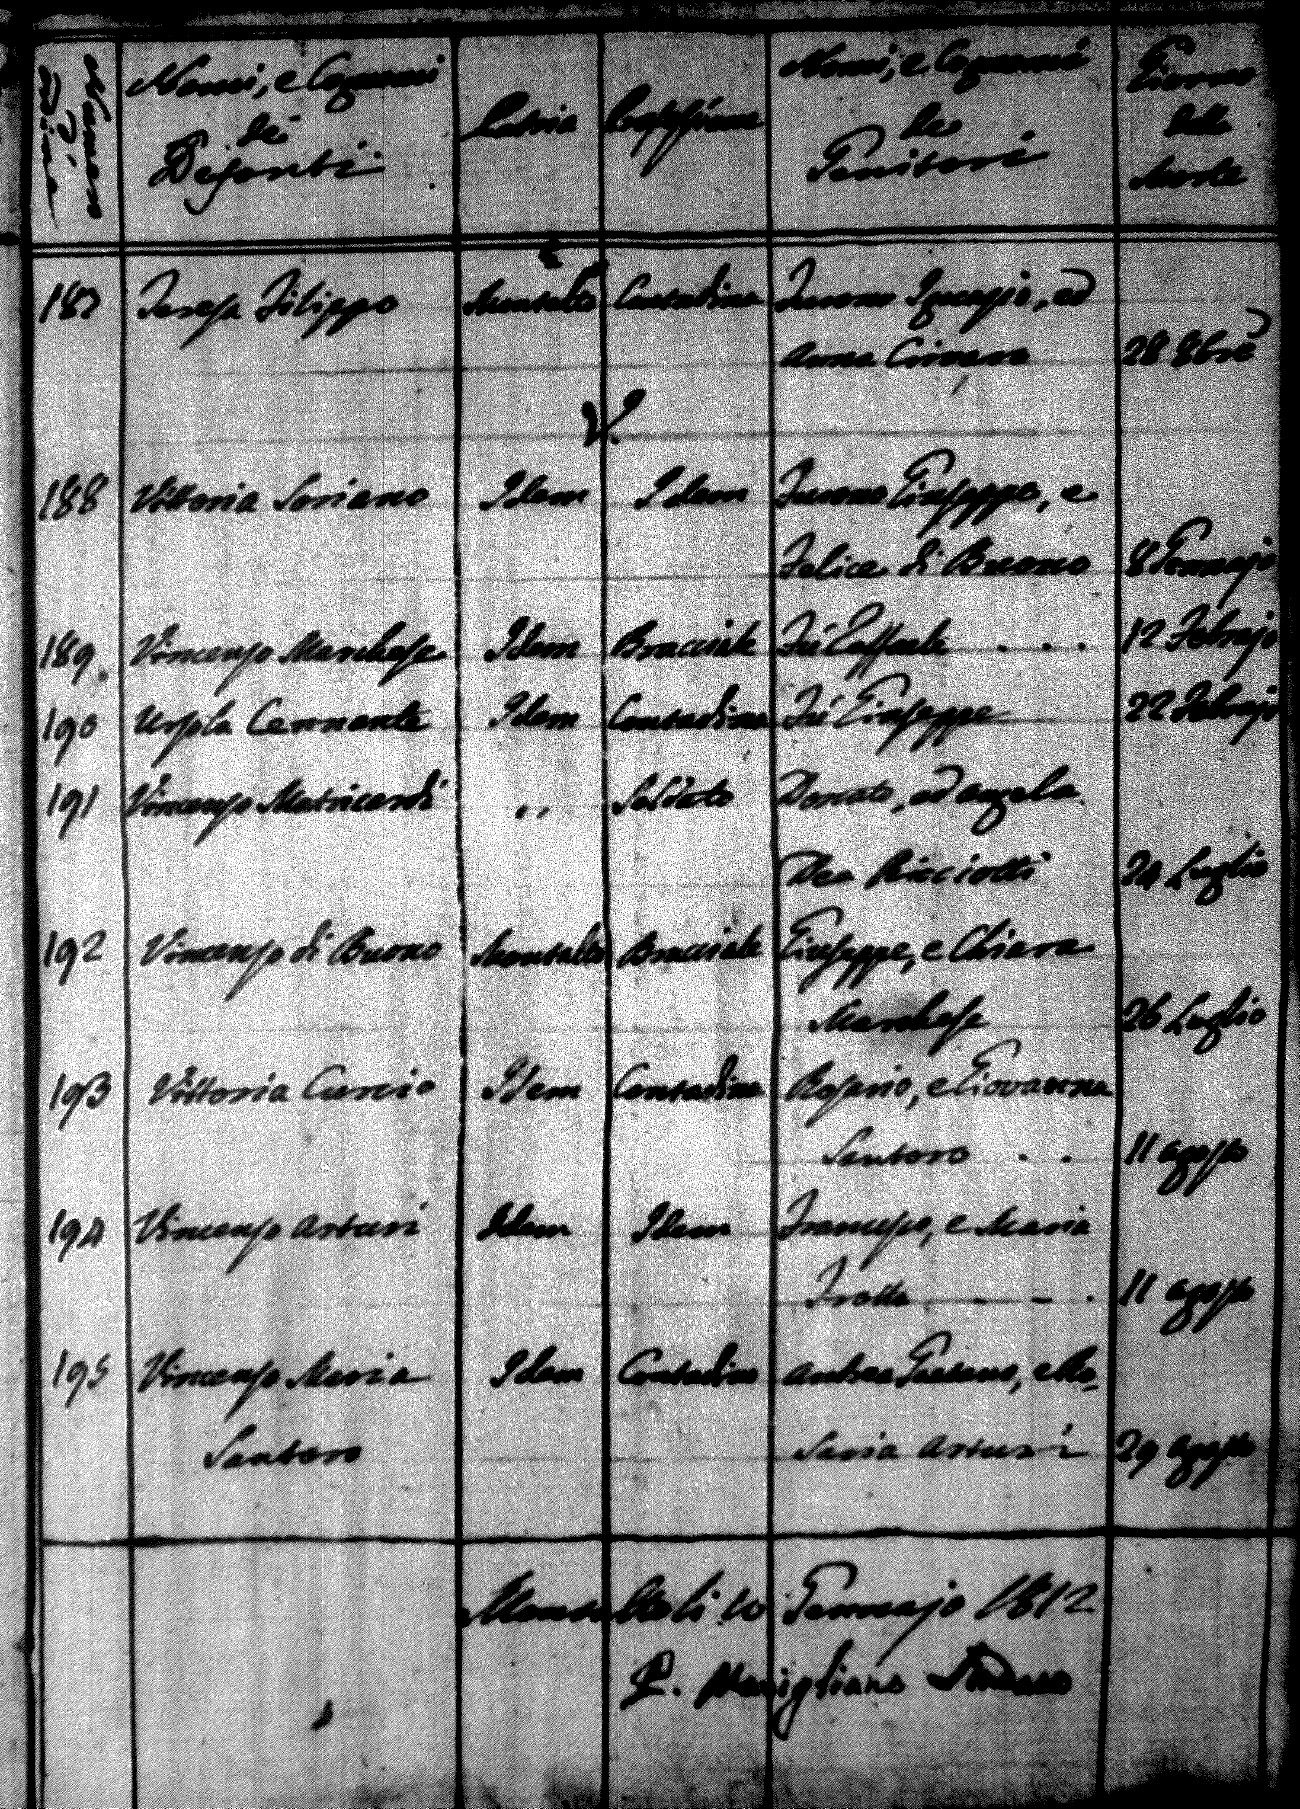 Nomi, e Cognomi Nomi, e Cognomi Giorno
dei Patria Professione de della
Defonti Genitori morte
187 Teresa Filippo Montalto Contadina Furono Ignazio, ed
Anna Cimino 28 8bre
V.
188 Vittoria Soriano Idem Idem Furono Giuseppe, e
Felice di Buono 8 Gennajo
189 Vincenzo Marchese Idem Bracciale Fù Raffaele . . . 12 Febrajo
190 Ursola Cennante Idem Contadina Fù Giuseppe 22 Febrajo
191 Vincenzo Matricardi ,, Soldato Donato, ed Angela
Dea Ricciotti 24 Luglio
192 Vincenzo di Buono Montalto Bracciale Giuseppe, e Chiara
Marchese 26 Luglio
193 Vittoria Curcio Idem Contadina Rosario, e Giovanna
Santoro . . 11 agosto
194 Vincenzo Arturi Idem Idem Francesco, e Maria
Trotta - - . 11 agosto
195 Vincenzo Maria Idem Contadino Andrea Gaetano, e Ro-
Santoro saria Arturi 29 agosto
Montalto li 10 Gennajo 1812
P. Marigliano Sindaco